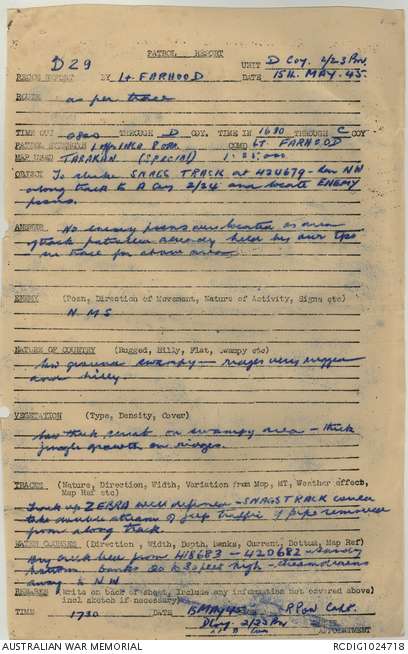 PATROL REPORT
D 29
UNIT D Coy. 2/23 Bn.
RECCE REPORT BY Lt. FARHOOD DATE 15th. MAY. 45.
ROUTE as per trace
TIME OUT 0800 THROUGH D COY. TIME IN 1630 THROUGH C COY
PATROL STRENGTH 1 & 8 ORs. COMD LT. FARHOOD
MAP USED TARAKAN (SPECIAL) 1:25,000
OBJECT To strike SNAGS TRACK at 424679 NW
along track to A Coy 2/24 and locate ENEMY
posns.
ANSWER No enemy posns were located as area
of track patrolled already held by our tps
in trace for above area
ENEMY (Posn, Direction of Movement, Nature of Activity, Signs etc)
N M S
NATURE OF COUNTRY (Rugged, Hilly, Flat, Swampy etc)
low ground swampy — ridges very rugged
and hilly
VEGETATION (Type, Density, Cover)
low thick scrub on swampy area — thick
jungle growth on ridges.
TRACKS (Nature, Direction, Width, Variation from Map, MT, Weather effects,
Map Ref etc)
Track up ZEBRA well defined — SNAGS TRACK could
take double stream of jeep traffic if pipe removed
from along track.
WATER COURSES (Direction, Width, Depth, Banks, Current, Bottom, Map Ref)
Dry creek bed from 418683 — 420682 sandy
bottom banks 20 to 30 feet high
away to NW
REMARKS (Write on back of sheet, Include any information not covered above)
incl sketch if necessary)
TIME 1730 15 MAY 45 Capt.
D Coy. 2/23 Bn
APPOINTMENT
AUSTRALIAN WAR MEMORIAL RCDIG1024718